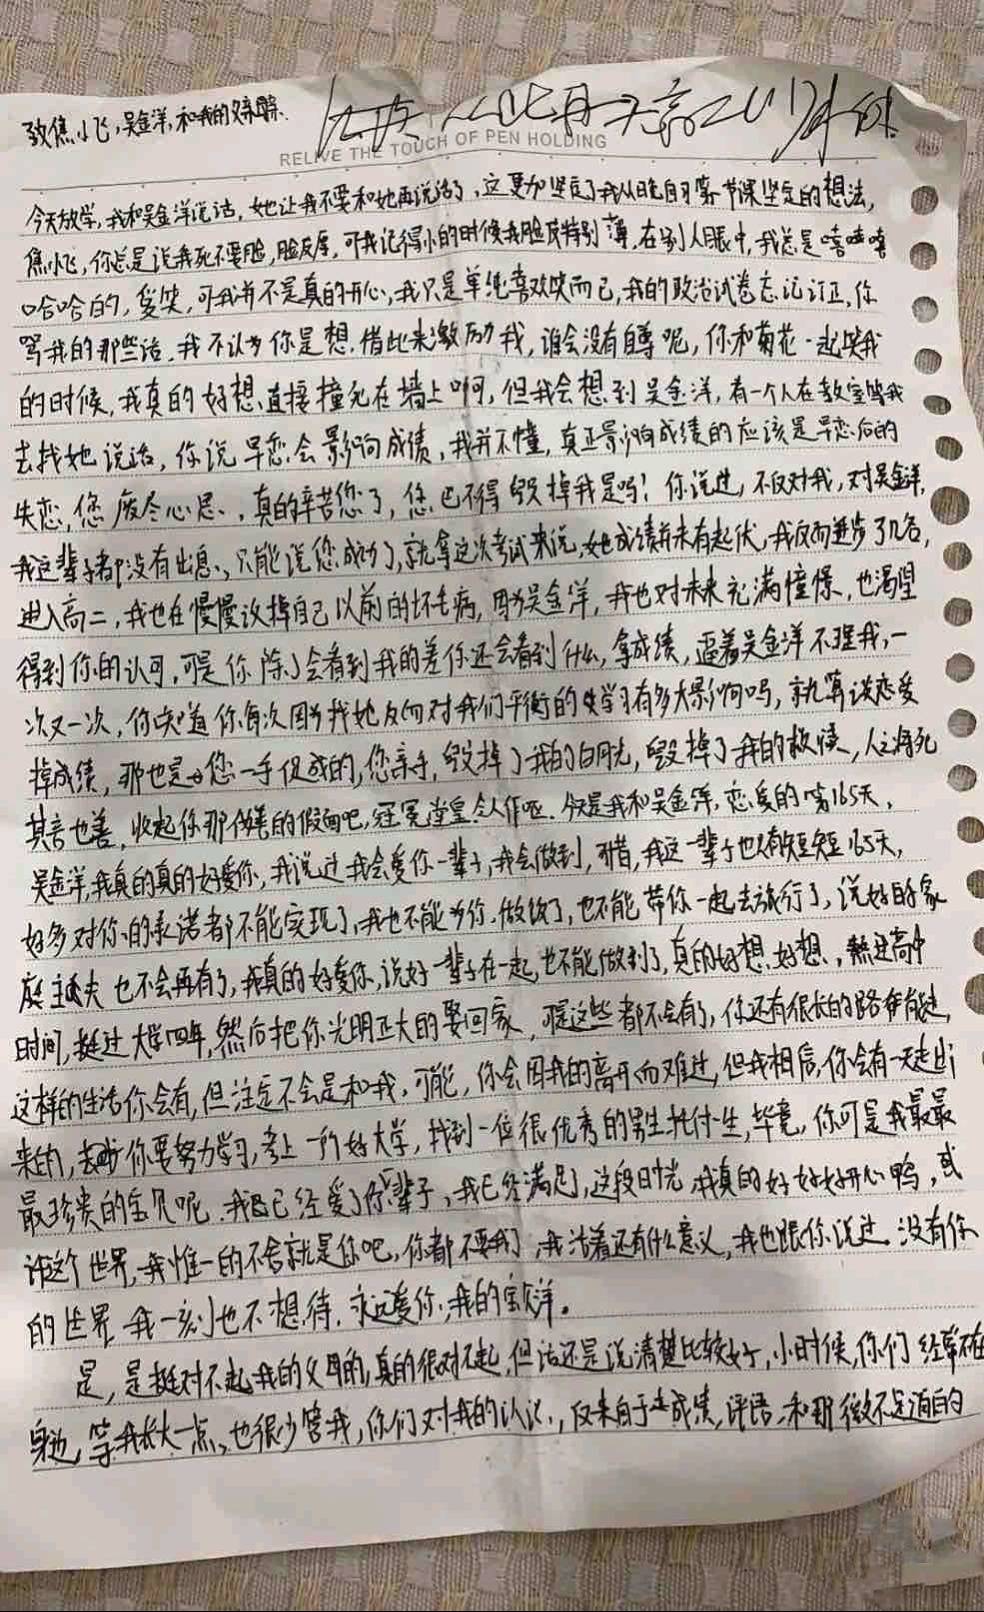 致焦小飞,吴金洋,和我的父母
RELIVE THE TOUCH OF PEN HOLDING
今天放学,我和吴金洋说话,她让我不要和她再说话了,这更加坚定了我从晚自习第一节课坚定的想法,
焦小飞,你总是说我死不要脸,脸皮厚,可我记得小的时候我脸皮特别薄,在别人眼中,我总是嘻嘻嘻
哈哈的,爱笑,可我并不是真的开心,我只是单纯喜欢笑而已,我的政治试卷忘记订正,你
骂我的那些话,我不认为你是想借此来激励我,谁会没有自尊呢,你和菊花一起笑我
的时候,我真的好想直接撞死在墙上啊,但我会想到吴金洋,有一个人在教室等我
去找她说话,你说早恋会影响成绩,我并不懂,真正影响成绩的应该是早恋后的
失恋,您废尽心思,真的辛苦您了,您巴不得毁掉我是吗!你说过,不仅对我,对吴金洋,
我这辈子都没有出息,只能说您成功了,就拿这次考试来说,她成绩并未有起伏,我反而进步了几名,
进入高二,我也在慢慢改掉自己以前的坏毛病,因为吴金洋,我也对未来充满憧憬,也渴望
得到你的认可,可是你除了会看到我的差你还会看到什么,拿成绩,逼着吴金洋不理我,一
次又一次,你知道你每次因为我找她反而对我们平衡的学习有多大影响吗,就算谈恋爱
掉成绩,那也是您一手促成的,您亲手毁掉了我的白月光,毁掉了我的救赎,人之将死
其言也善,收起你那伪善的假面吧,冠冕堂皇令人作呕.今天是我和吴金洋恋爱的第165天,
吴金洋,我真的真的好爱你,我说过我会爱你一辈子,我会做到,可惜,我这一辈子也只有短短165天,
好多对你的承诺都不能实现了,我也不能为你做饭了,也不能带你一起去旅行了,说好的家
庭主夫也不会再有了,我真的好爱你,说好一辈子在一起,也不能做到了,真的好想好想,熬过高中
时间,挺过大学四年,然后把你光明正大的娶回家,可是这些都不会有了,你还有很长的路
这样的生活你会有,但注定不会是和我,可能,你会因我的离开而难过,但我相信,你会有一天走出
来的,你要努力学习,考上一所好大学,找到一位很优秀的男生托付一生,毕竟,你可是我最最
最珍贵的宝贝呢.我已经爱了你一辈子,我已经满足,这段时光我真的好好好开心鸭,或
许这个世界,我惟一的不舍就是你吧,你都不要我了,我活着还有什么意义,我也跟你说过,没有你
的世界,我一刻也不想待,永远爱你,我的金洋。
是,是挺对不起我的父母的,真的很对不起,但话还是说清楚比较好,小时候,你们经常不在
身边,等我长大一点,也很少管我,你们对我的认识,仅来自于成绩,评语,和那微不足道的